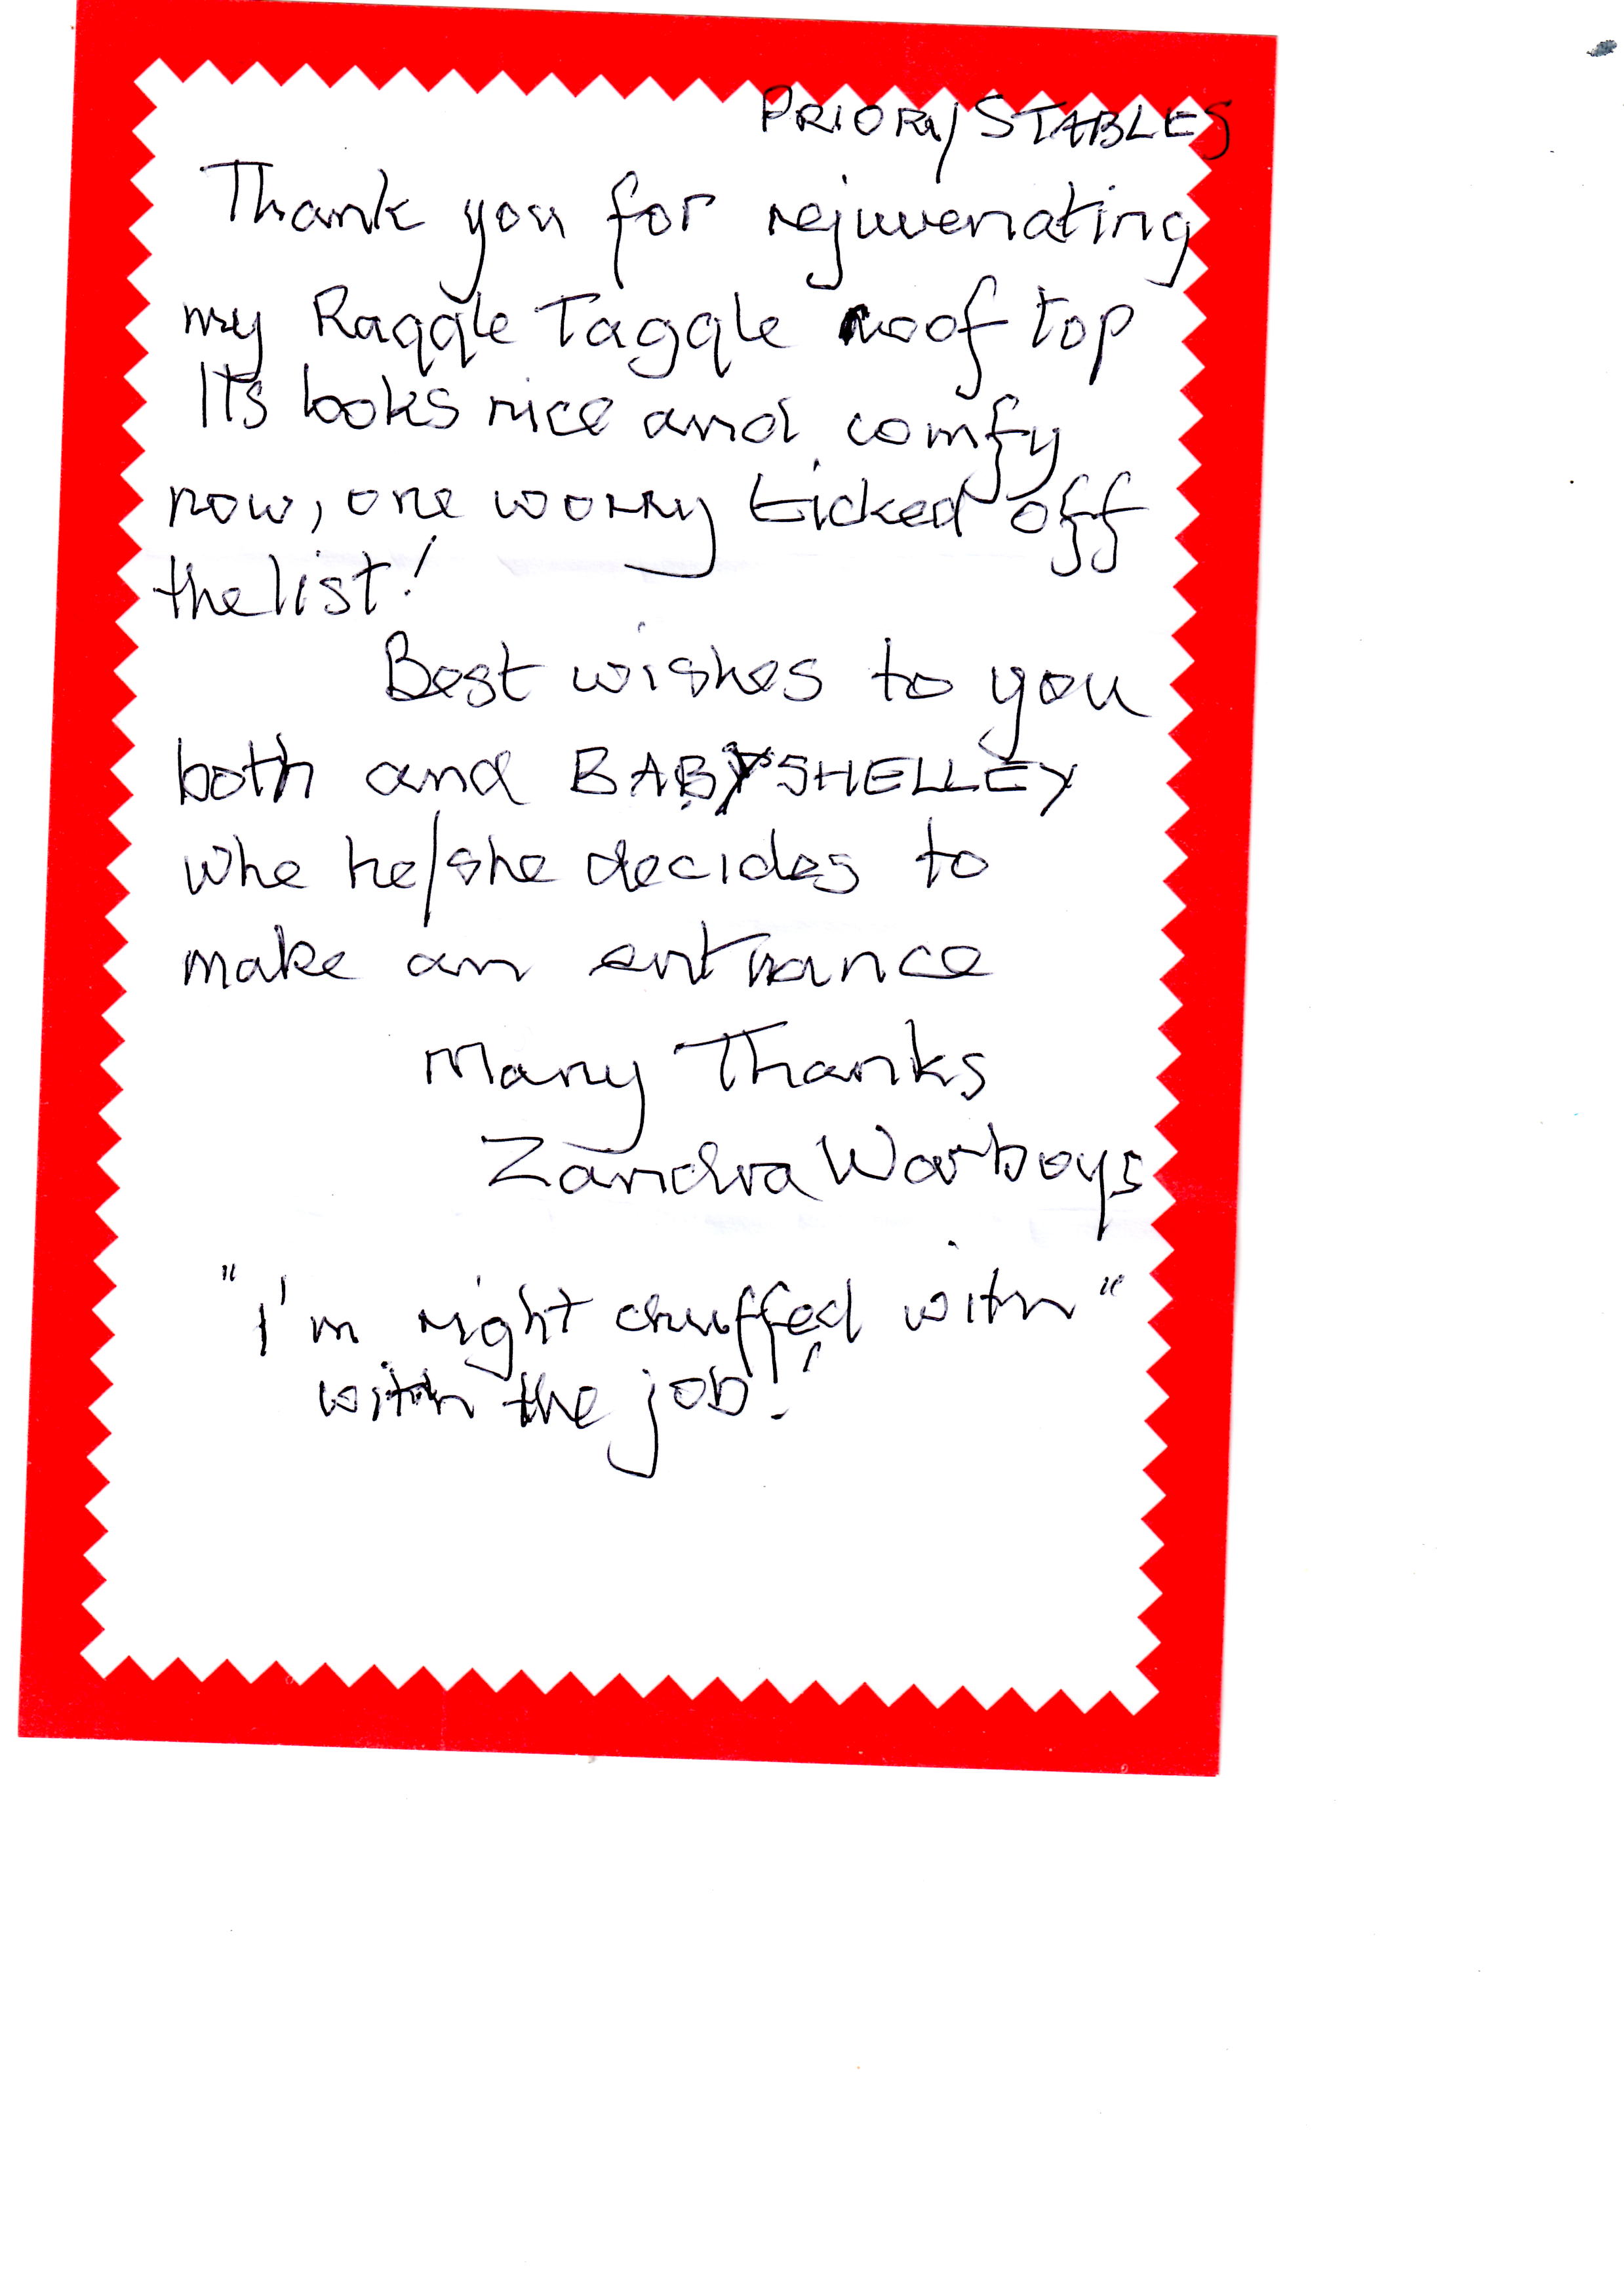 PRIORY STABLES
Thank you for rejuvenating
my Raggle Taggle roof top
Its looks nice and comfy
now, one worry ticked off
the list!
Best wishes to you
both and BABY SHELLEY
whe he/she decides to
make an entrance
Many Thanks
Zandra Warboys
"I'm right chuffed with"
with the job!!